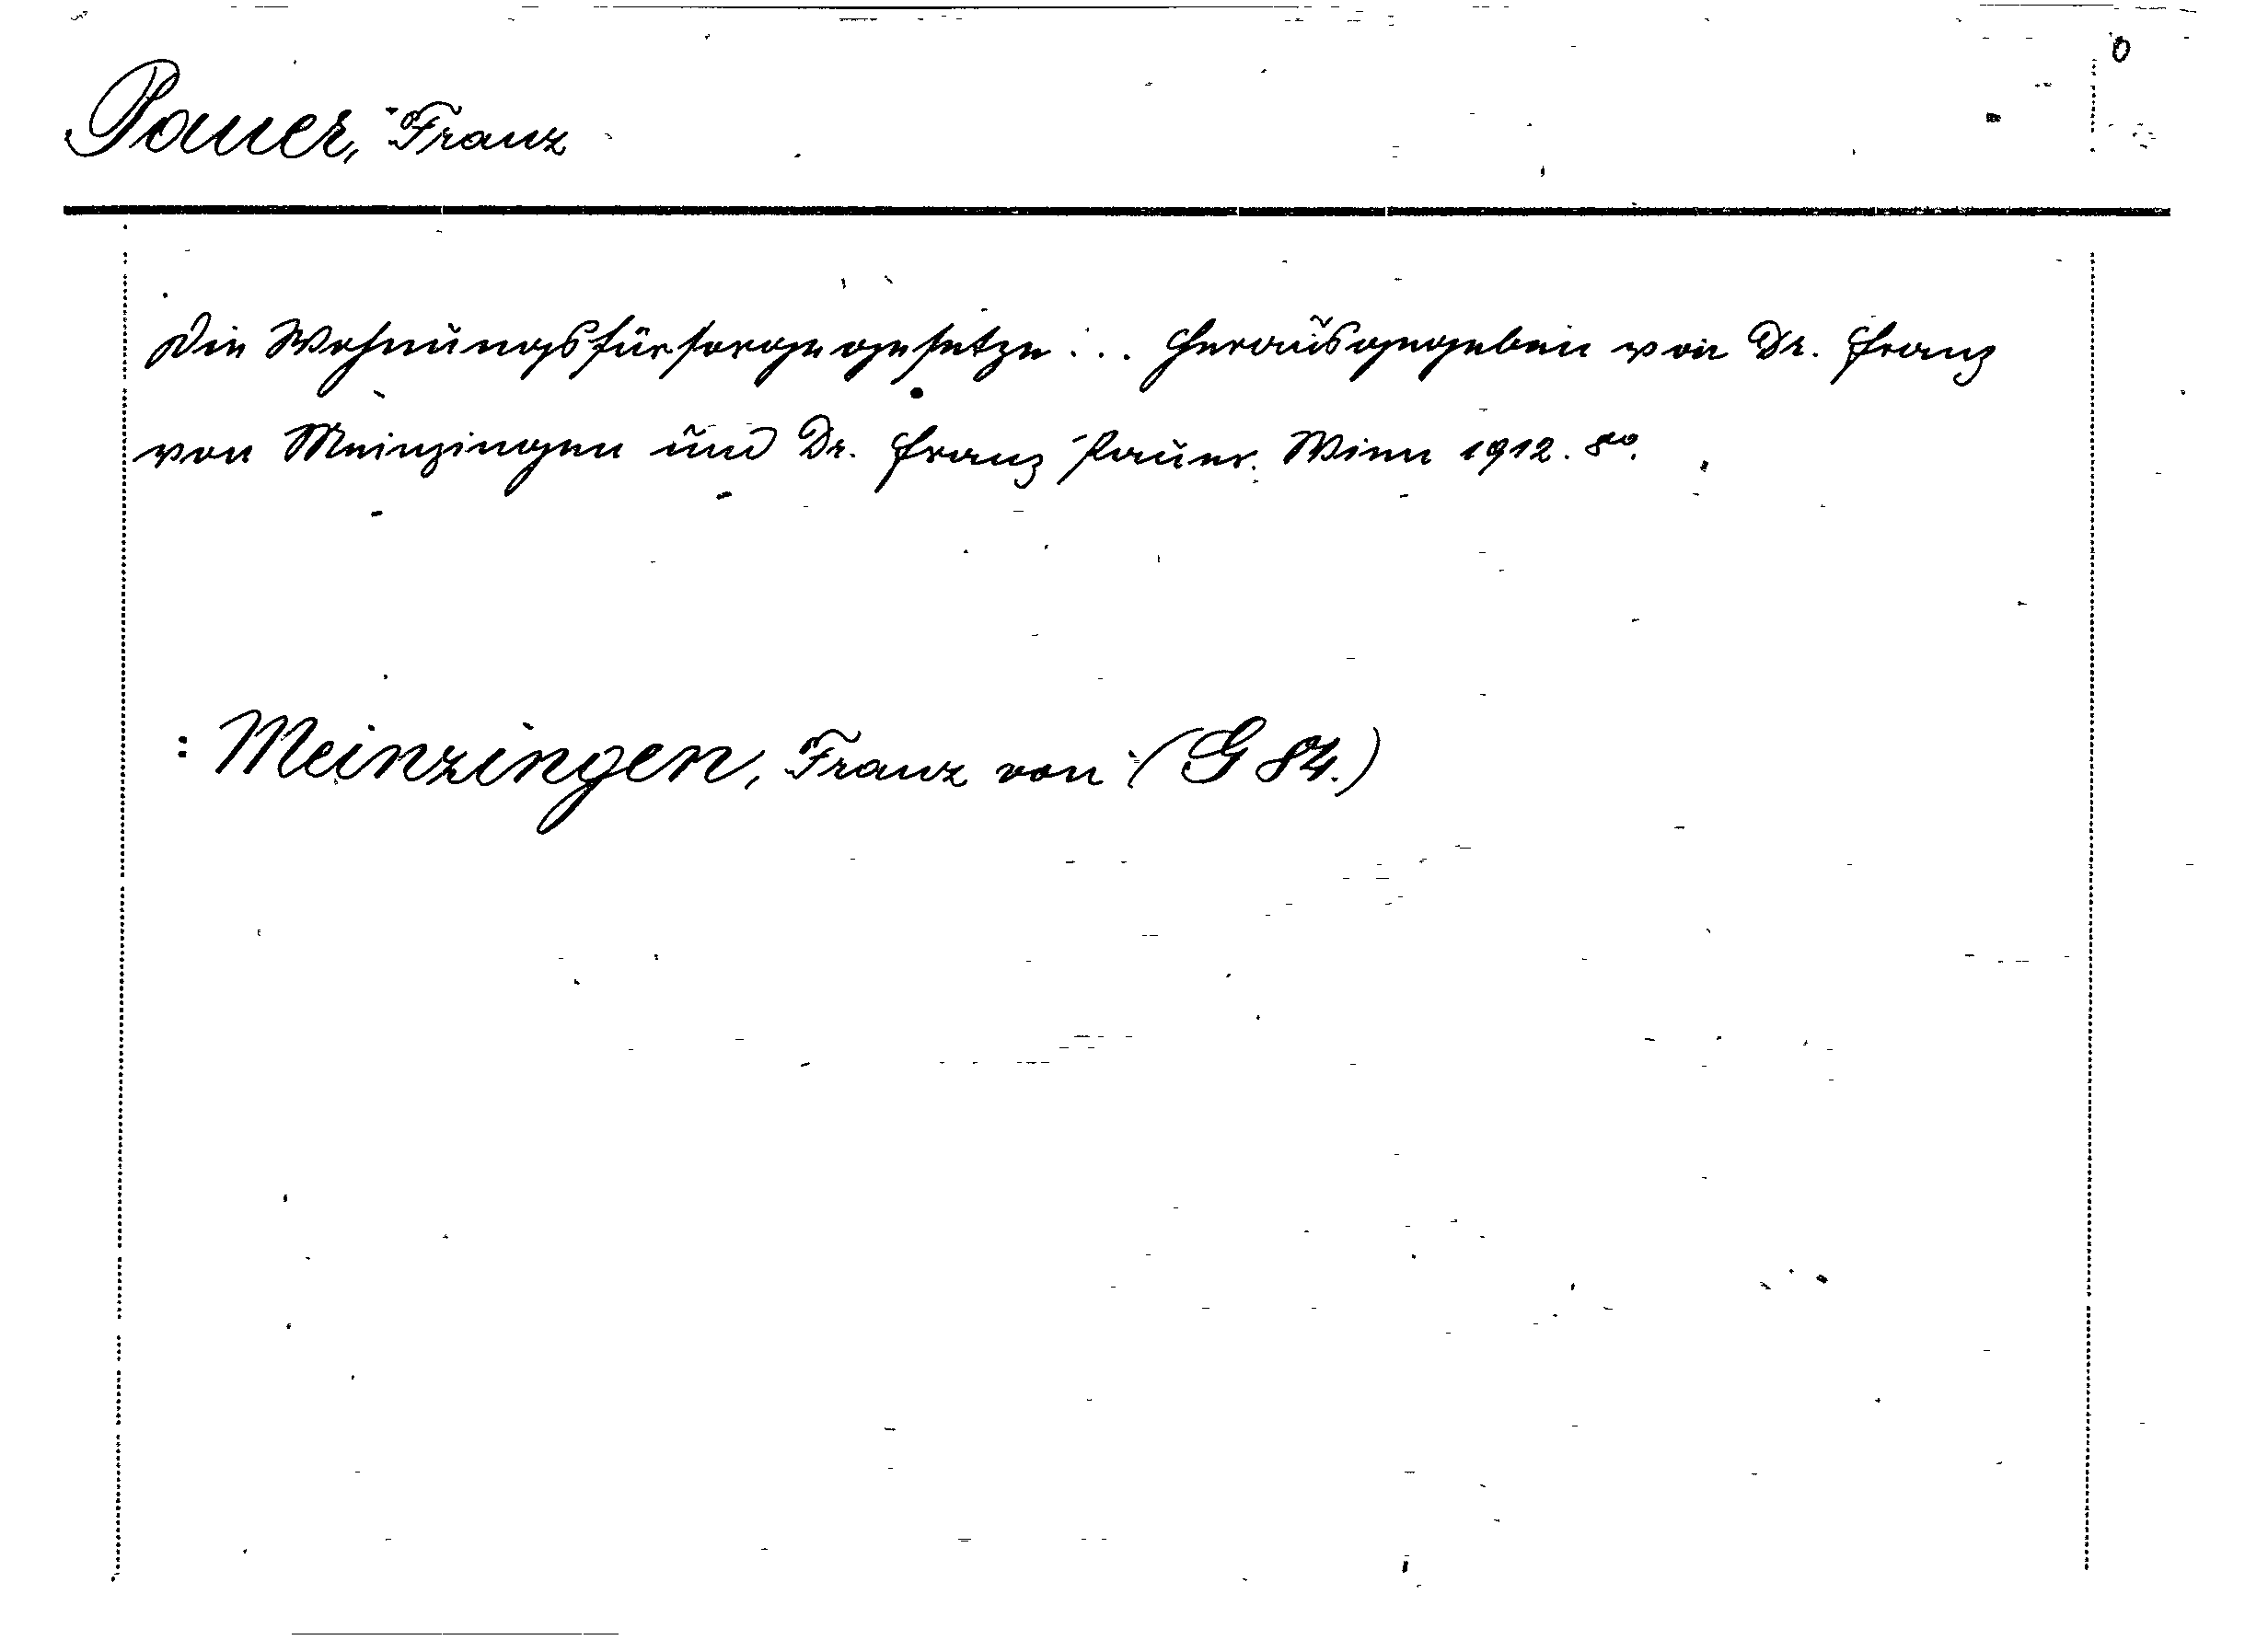 Pauer, Franz
Die Wohnungsfürsorgegesetze... Herausgegeben von Dr. Franz
von Meinzingen und Dr. Franz Pauer. Wien 1912. 8°.
: Meinzingen, Franz von (G 84.)